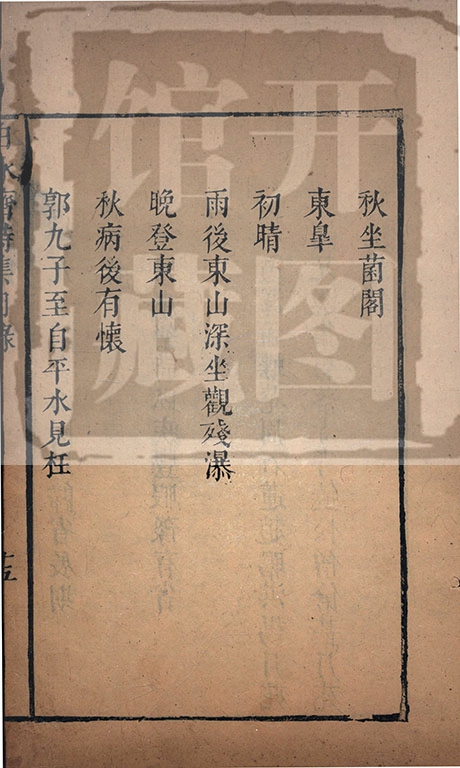 秋坐菌閣
東皐
初晴
雨後東山深坐觀殘瀑
晚登東山
秋病後有懷
郭九子至自平水見枉
詩集目錄
十五
开图
馆藏